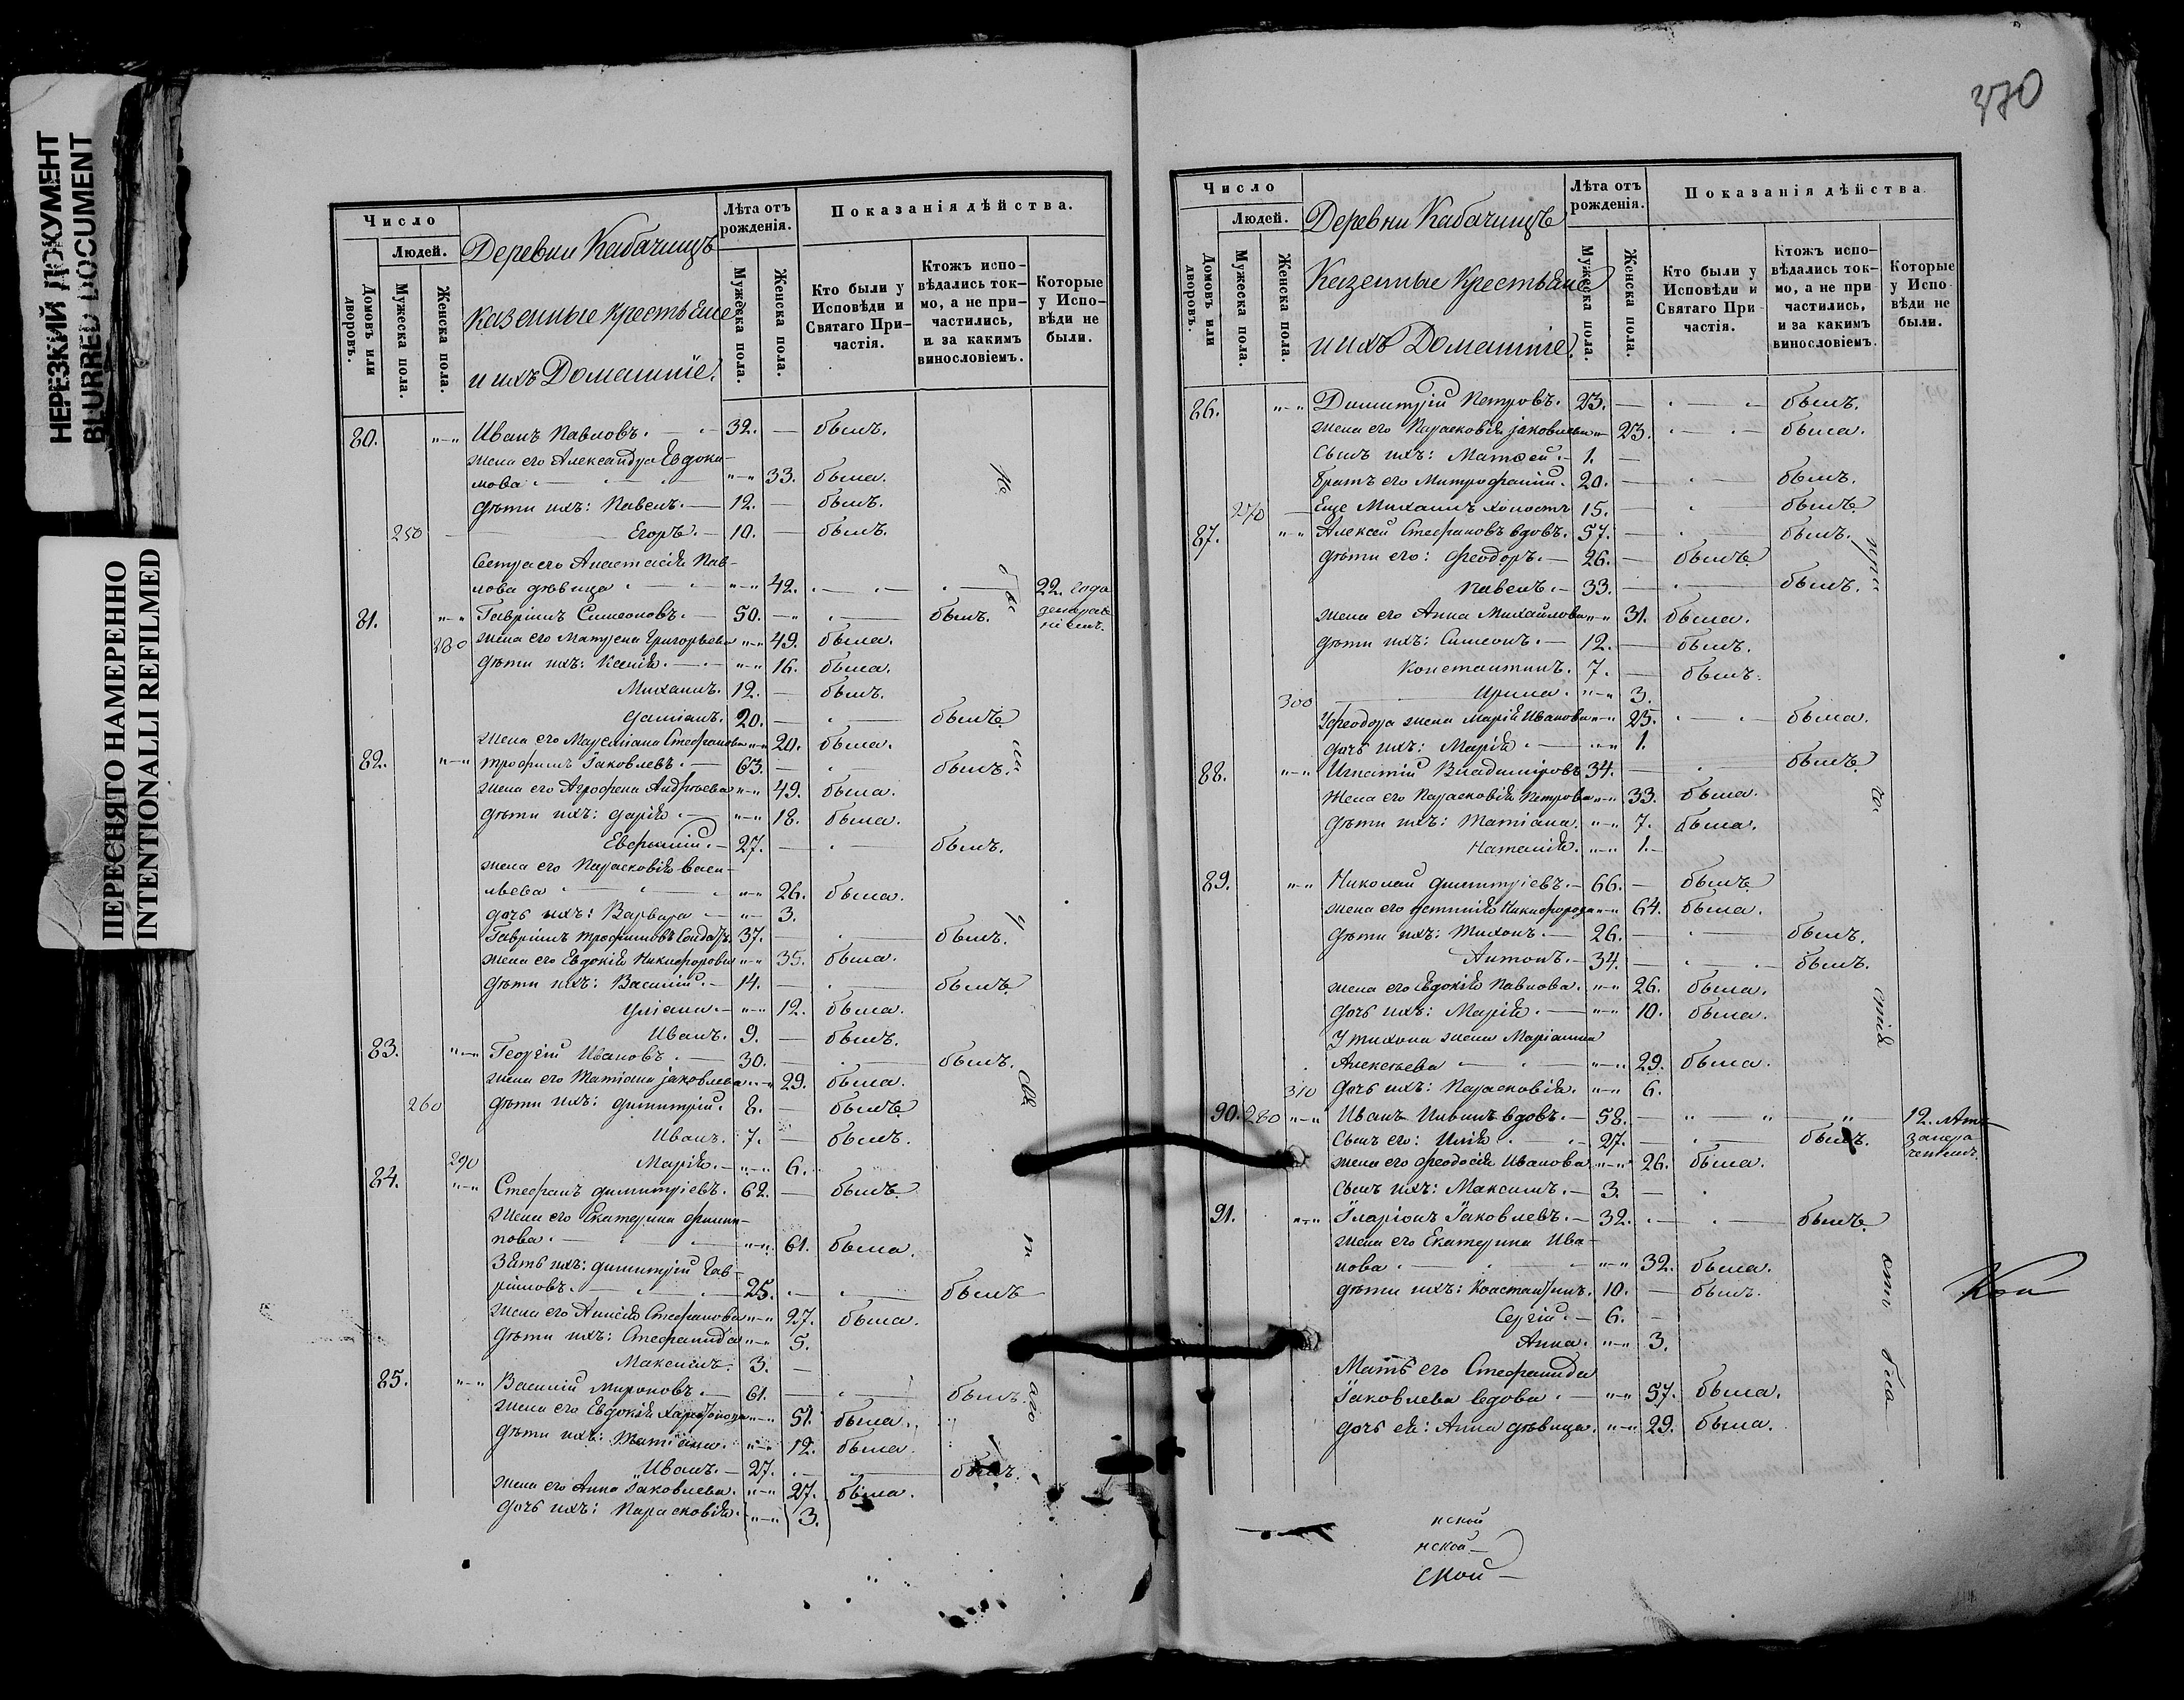 НЕРЕЗКИЙ ДОКУМЕНТ
BLURRED DOCUMENT
ПЕРЕСНЯТО НАМЕРЕННО
INTENTIONALLI REFILMED
Число
Людей.
Домовъ или дворовъ.
Мужеска пола.
Женска пола.
Деревни Кабачищъ
казенные крестьяне
и ихъ Домашніе.
Лѣта отъ рожденія.
Мужеска пола.
Женска пола.
Показанія дѣйства.
Кто были у Исповѣди и Святаго Причастія.
Ктожъ исповѣдались токмо, а не причастились, и за какимъ винословіемъ.
Которые у Исповѣди не были.
80. Иванъ Павловъ. 32. — былъ.
жена его Александра Евдоки-
мова 33. была.
дѣти ихъ: Павелъ. 12. — былъ.
250 Егоръ. 10. — былъ.
Сестра его Анастасія Пав-
лова дѣвица 42. 22. года
81. Гавріилъ Симеоновъ. 50. — былъ.
280 жена его Матрена Григорьева 49. была.
дѣти ихъ: Ксенія. 16. была.
Михаилъ. 12. — былъ.
Даміанъ. 20. — былъ.
жена его Стефанова 20. была.
82. Трофимъ Іаковлевъ. 63. — былъ.
жена его Агрофена Андреева 49. была.
дѣти ихъ: Дарія 18. была.
Евфимій. 27. — былъ.
жена его Парасковія Васи-
льева 26. была.
дочь ихъ: Варвара 3.
Гавріилъ Трофимовъ Солдатъ. 37. — былъ.
жена его Евдокія Никифорова 35. была.
дѣти ихъ: Василій. 14. — былъ.
Уліана. 12. была.
Иванъ. 9. — былъ.
83. Георгій Ивановъ. 30. — былъ.
жена его Татіана Іаковлева 29. была.
260 дѣти ихъ: Димитрій. 8. — былъ
Иванъ. 7. — былъ.
290 Марія. 6.
84. Стефанъ Димитріевъ. 62. — былъ
жена его Екатерина Филип-
пова. 61. была.
Зять ихъ: Димитрій Гав-
ріиловъ. 25. былъ
жена его Анисія Стефанова 27. была.
дѣти ихъ: Стефанида 5.
Максимъ. 3. —
85. Василій Мироновъ. 61. — былъ.
жена его Евдокія 51. была.
дѣти ихъ: Татіана. 12. была.
Иванъ. 27. былъ.
жена его Анна Іаковлева. 27. была.
дочь ихъ: Парасковія. 3.
370
Число
Людей.
Домовъ или дворовъ.
Мужеска пола.
Женска пола.
Деревни Кабачищъ
Казенные Крестьяне
и ихъ Домашніе.
Лѣта отъ рожденія.
Мужеска пола.
Женска пола.
Показанія дѣйства.
Кто были у Исповѣди и Святаго Причастія.
Ктожъ исповѣдались токмо, а не причастились, и за какимъ винословіемъ.
Которые у Исповѣди не были.
86. Димитрій Петровъ. 23. — былъ.
жена его Парасковія Іаковлева 23. была.
Сынъ ихъ: Матѳей. 1. —
братъ его Митрофаній. 20. — былъ.
270 Еще Михаилъ холостъ 15. — былъ.
87. Алексей Стефановъ вдовъ. 57. — былъ.
дѣти его: Феодоръ. 26. — былъ
Павелъ. 33. — былъ.
жена его Анна Михайлова 31. была.
дѣти ихъ: Симеонъ. 12. — былъ.
Константинъ. 7. — былъ.
300 Ирина. 3.
У Феодора жена Марія Иванова 25. была.
дочь ихъ: Марія. 1.
88. Игнатій Владиміровъ 34. — былъ.
жена его Парасковія Петрова 33. была.
дѣти ихъ: Татіана. 7. была.
Наталія. 1.
89. Николай Димитріевъ. 66. — былъ
жена его Никифорова 64. была.
дѣти ихъ: Тихонъ. 26. — былъ.
Антонъ. 34. — былъ.
жена его Евдокія Павлова. 26. была.
дочь ихъ: Марія. 10. была.
У Тихона жена Маріанна
Алексѣева 29. была.
310 дочь ихъ: Парасковія. 6.
90. 280 Иванъ вдовъ. 58. — 12. лѣтъ
Сынъ его: Илія 27. — былъ.
жена его Феодосія Иванова 26. была.
Сынъ ихъ: Максимъ. 3. —
91. Іларіонъ Іаковлевъ. 32. былъ
жена его Екатерина Ива-
нова 32. была.
дѣти ихъ: Константинъ. 10. — былъ.
Сергій. 6. —
Анна. 3.
Мать его Стефанида
Іаковлева вдова. 57. была.
дочь ея: Анна дѣвица. 29. была.
нской
нской
ской